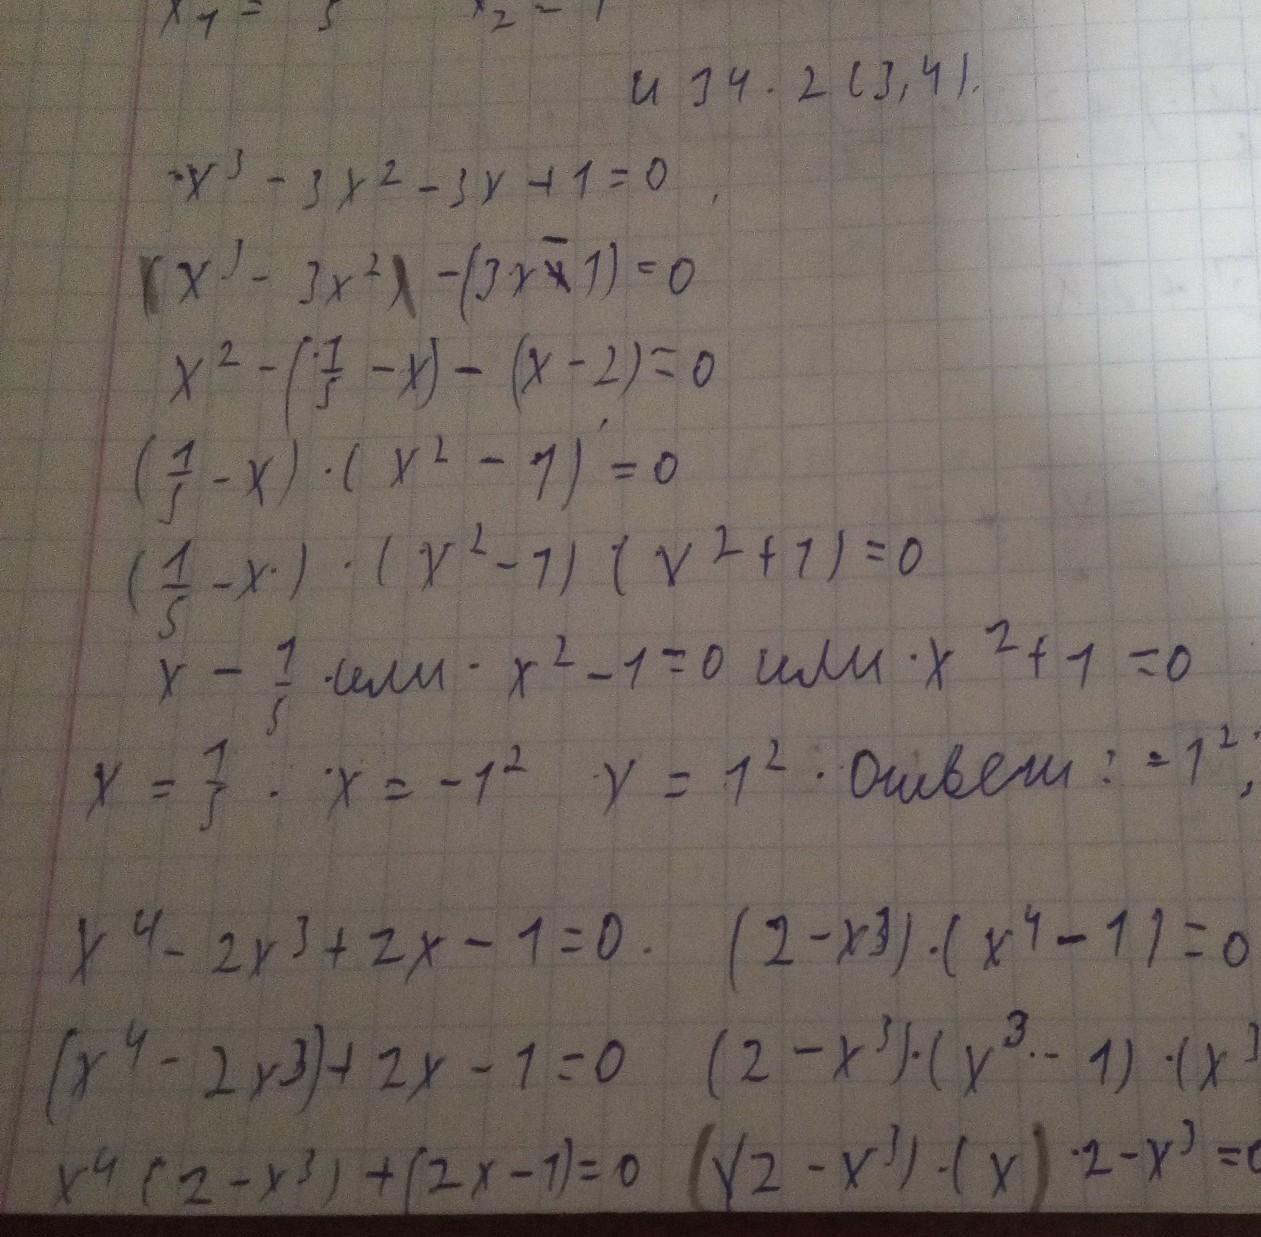 x₁ = 5 x₂ = 1
и 34.2 (3,4).
x³ - 3x² - 3x + 1 = 0
(x³ - 3x²) - (3x - 1) = 0
x² - (1/5 - x) - (x - 2) = 0
(1/5 - x) · (x² - 1) = 0
(1/5 - x) · (x² - 1) (x² + 1) = 0
x - 1/5 или x² - 1 = 0 или x² + 1 = 0
x = 1/5 . x = -1² x = 1² . Ответ: -1²;
x⁴ - 2x³ + 2x - 1 = 0. (2 - x³) · (x⁴ - 1) = 0
(x⁴ - 2x³) + 2x - 1 = 0 (2 - x³) · (x³ - 1) · (x³
x⁴ (2 - x³) + (2x - 1) = 0 ((2 - x³) · (x) · 2 - x³ = 0